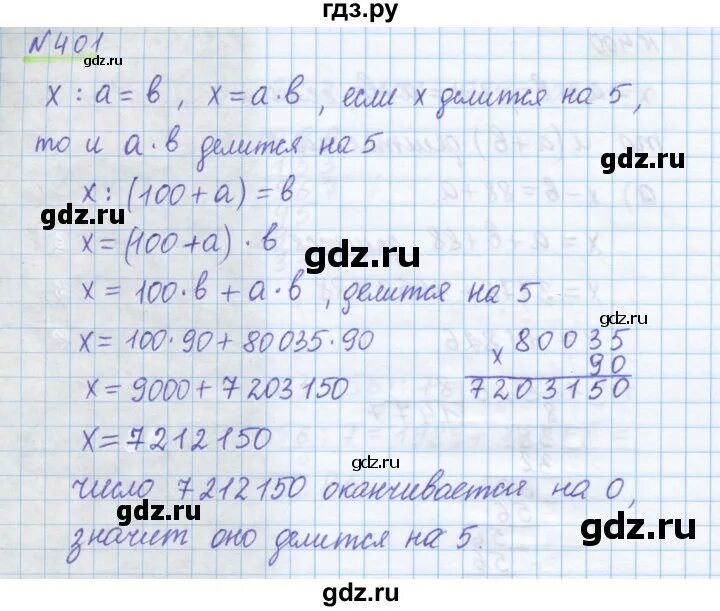 гдз.ру
№401
gdz.ru
x : a = b , x = a·b , если x делится на 5,
то и a·b делится на 5
gdz.ru
x : (100 + a) = b
gdz.ru
x = (100 + a) · b
gdz.ru
x = 100·b + a·b , делится на 5
gdz.ru
x = 100·90 + 80035·90
80035
x 90
7203150
x = 9000 + 7203150
x = 7212150
gdz.ru
число 7212150 оканчивается на 0,
gdz.ru
gdz.ru
значит оно делится на 5.
gdz.ru